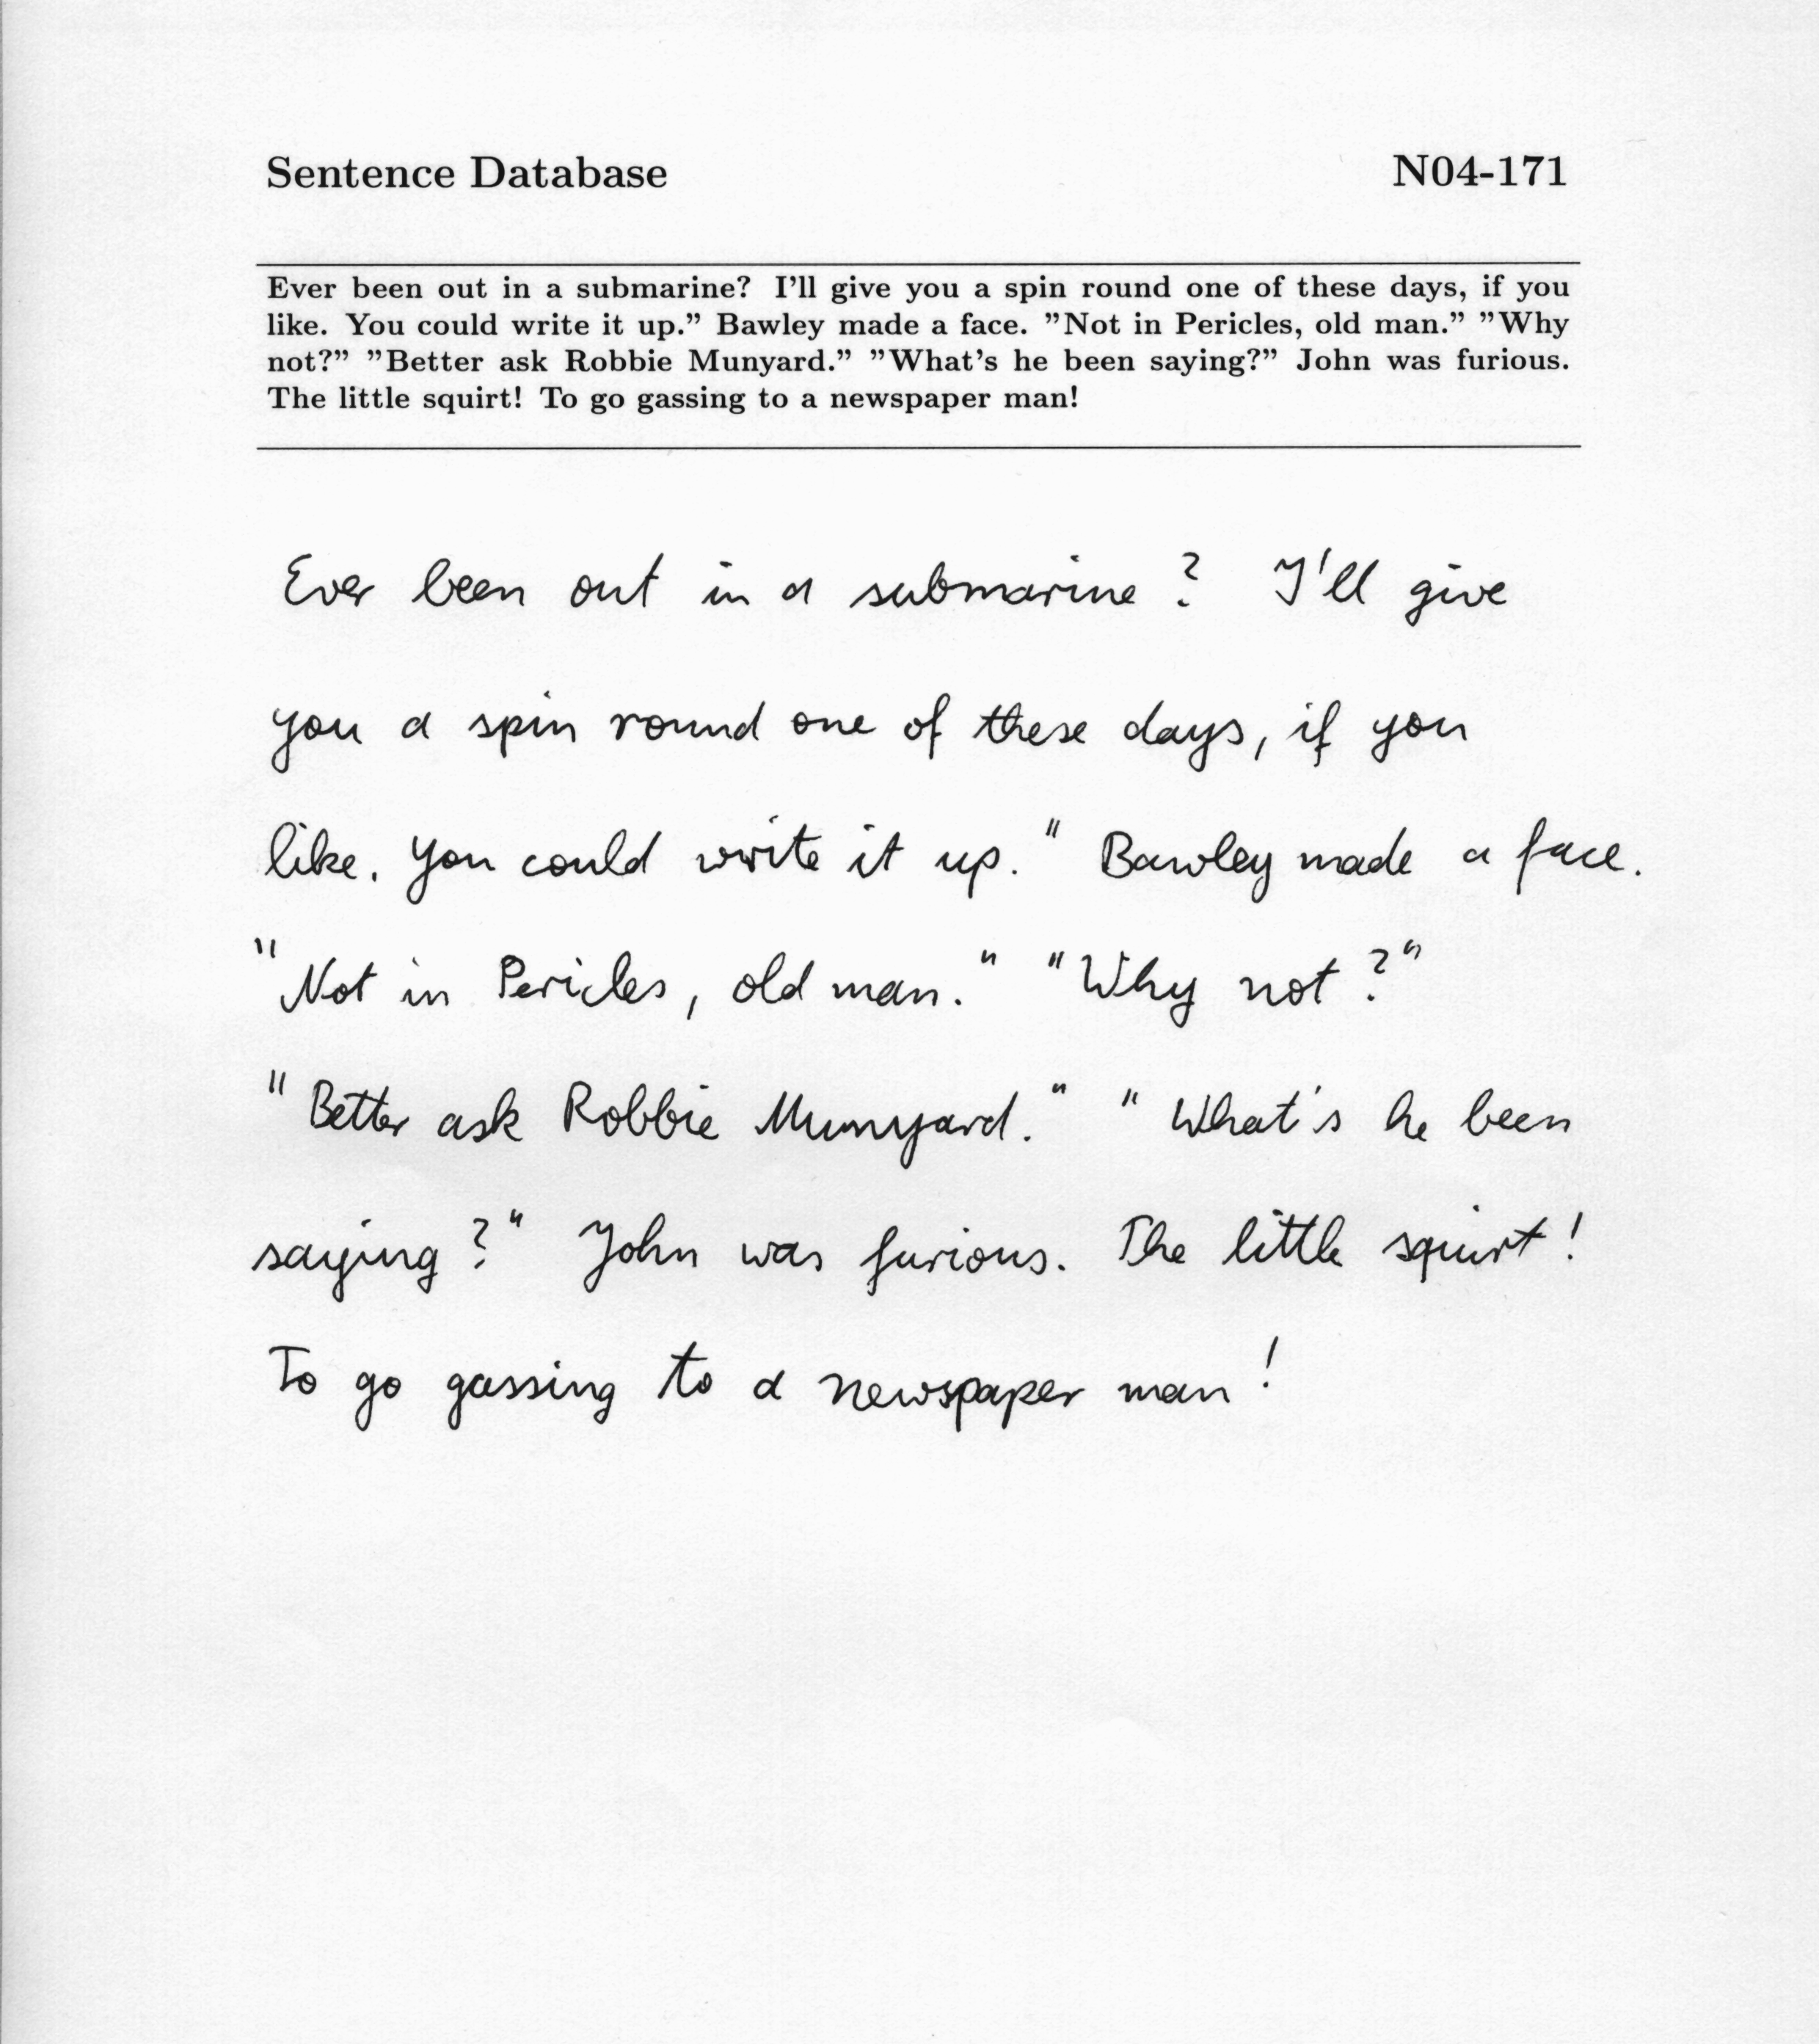 Sentence Database N04-171
Ever been out in a submarine? I'll give you a spin round one of these days, if you
like. You could write it up.” Bawley made a face. ”Not in Pericles, old man.” ”Why
not?” ”Better ask Robbie Munyard.” ”What's he been saying?” John was furious.
The little squirt! To go gassing to a newspaper man!
Ever been out in a submarine? I'll give
you a spin round one of these days, if you
like. You could write it up." Bawley made a face.
"Not in Pericles, old man." "Why not?"
"Better ask Robbie Munyard." "What's he been
saying?" John was furious. The little squirt!
To go gassing to a newspaper man!